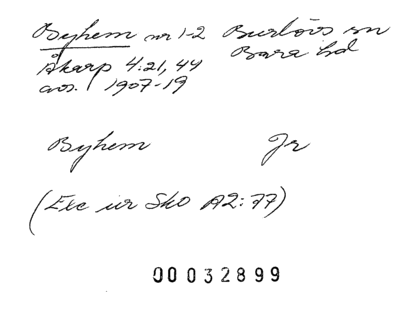 Byhem nr 1-2 Burlövs sn
Åkarp 4:21, 44 Bara hd
avs. 1907-19
Byhem Jr
(Exc ur Sko A2:77)
00032899